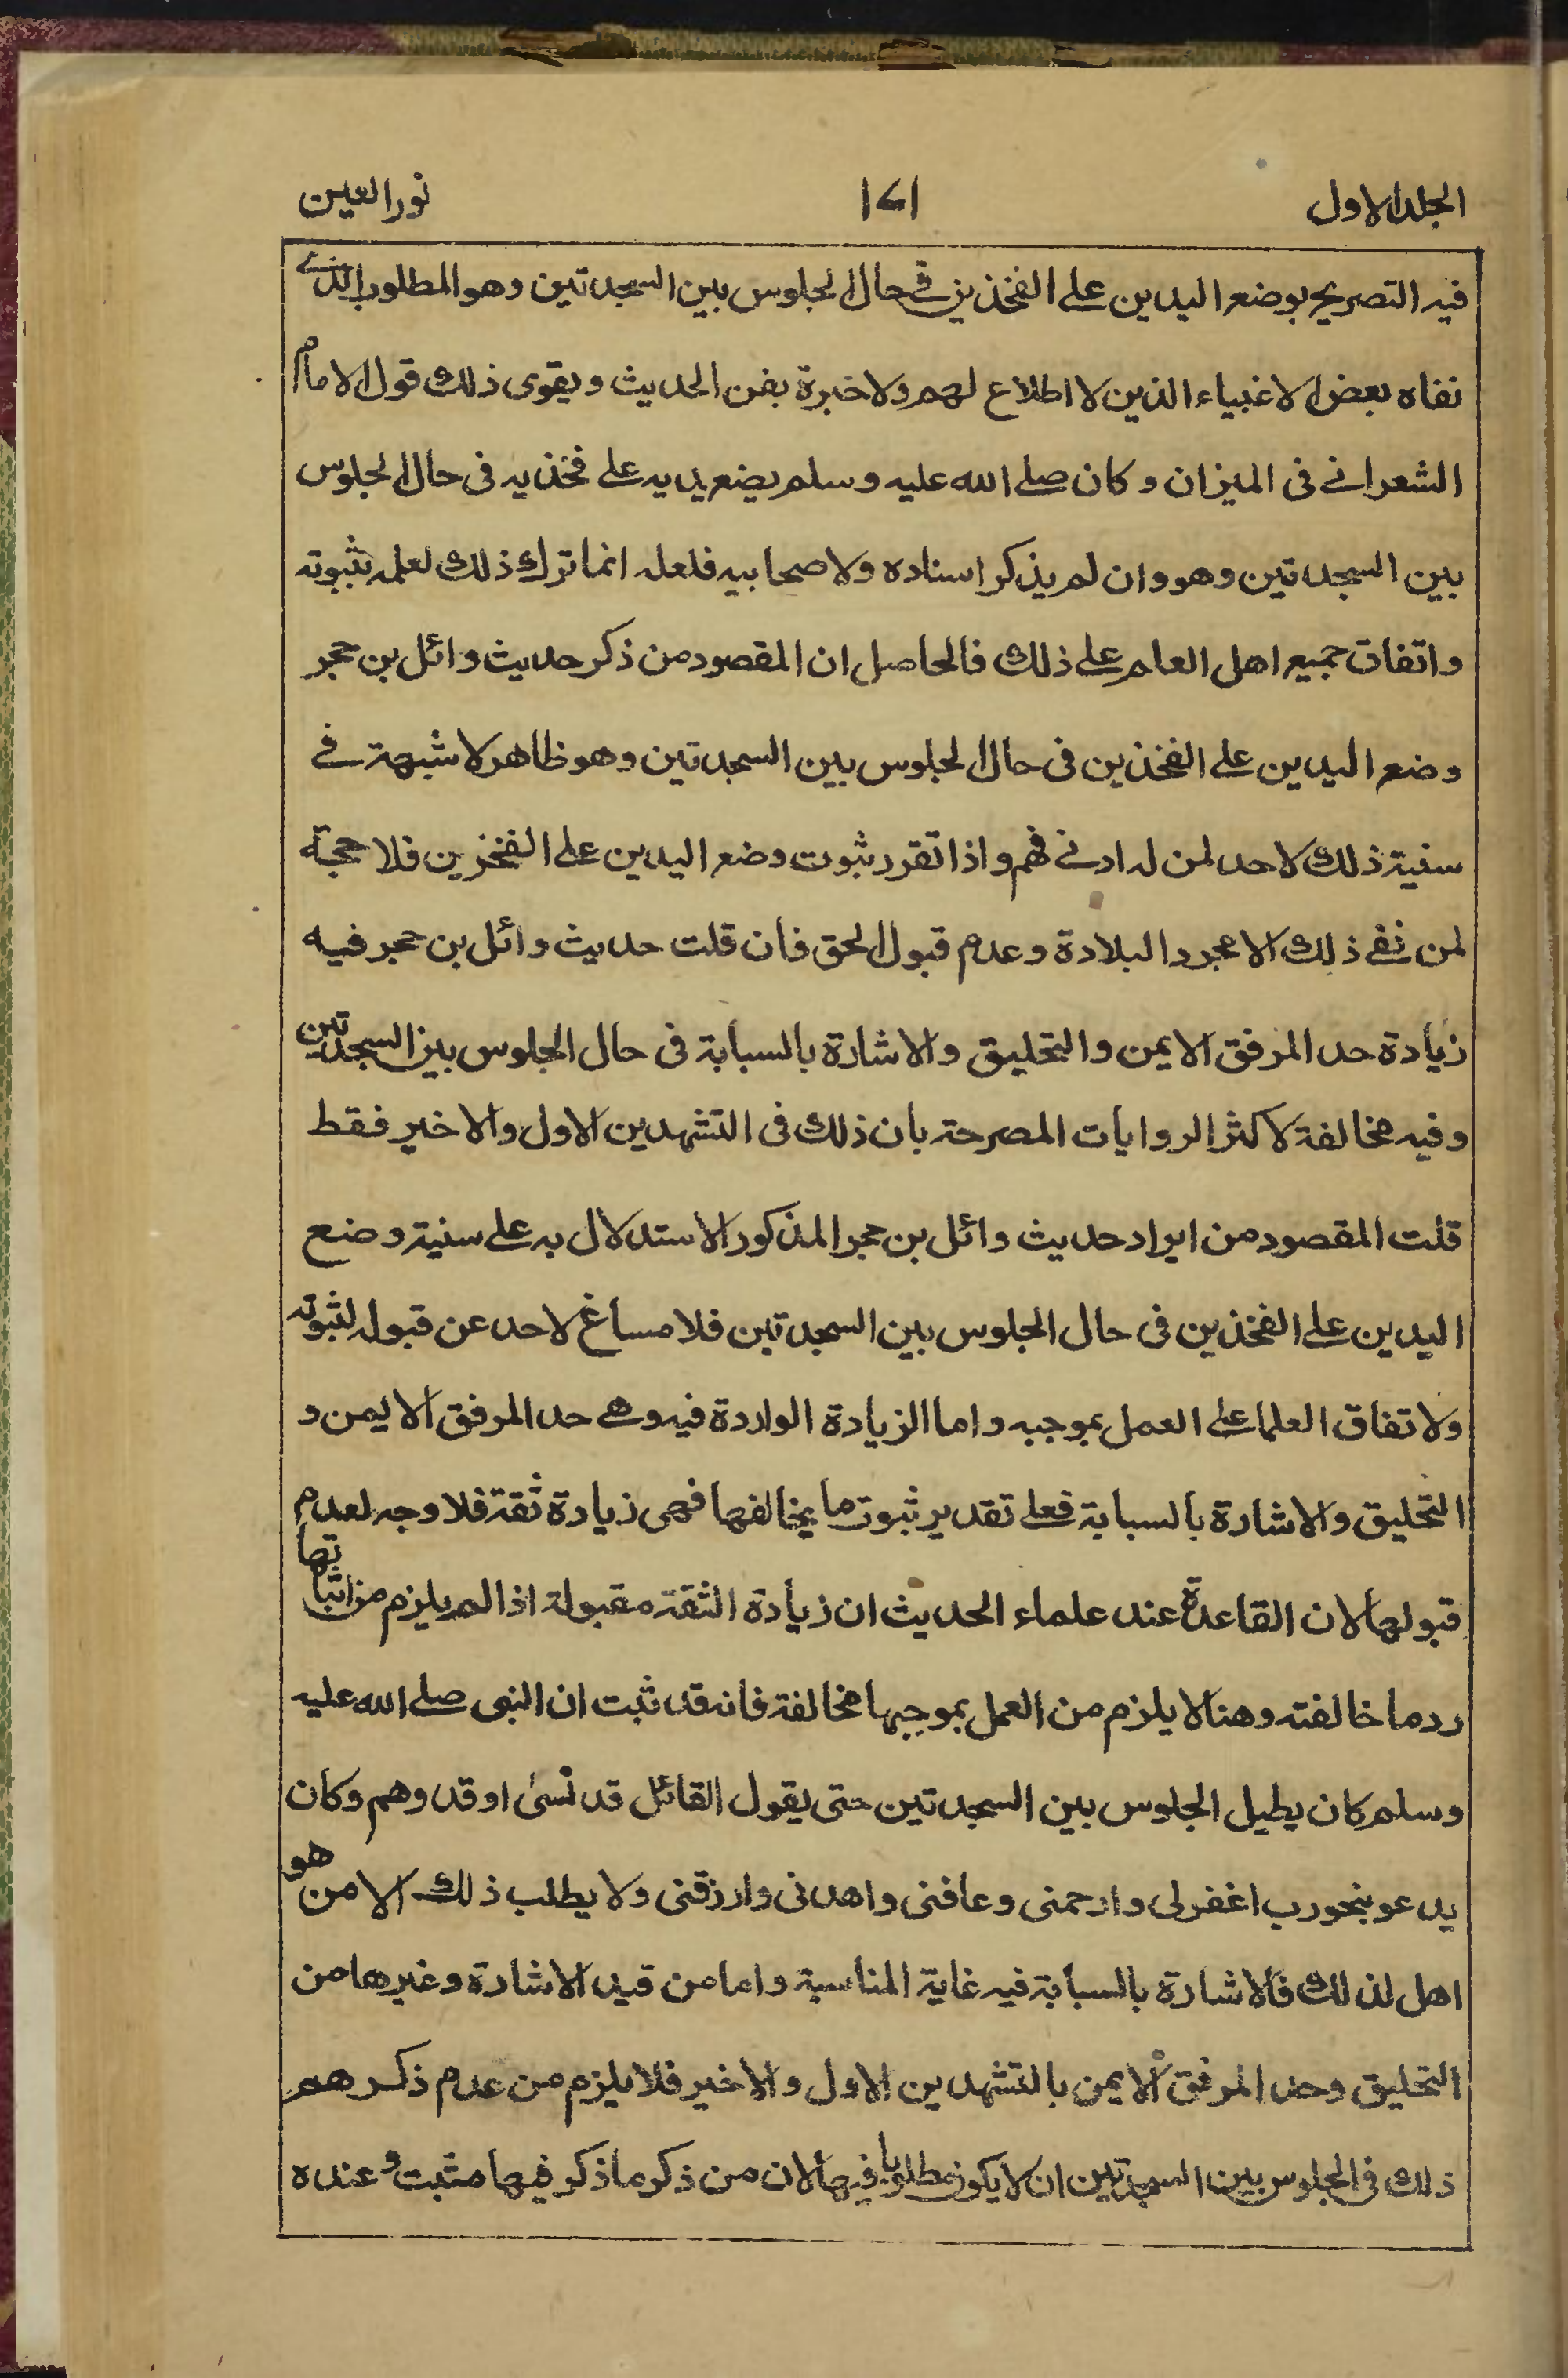 الجلد الاول
١٧١
نور العين
فيه التصريح بوضع اليدين على الفخذين في حال الجلوس بين السجدتين وهو المطلوب الذي
نفاه بعض الاغبياء الذين لا اطلاع لهم ولا خبرة بفن الحديث ويقوى ذلك قول الامام
الشعراني فى الميزان وكان صلى الله عليه وسلم يضع يديه على فخذيه فى حال الجلوس
بين السجدتين وهو وان لم يذكر اسناده ولا صحابيه فلعله انما ترك ذلك لعلمه بثبوته
واتفاق جميع اهل العلم على ذلك فالحاصل ان المقصود من ذكر حديث وائل بن حجر
وضع اليدين على الفخذين فى حال الجلوس بين السجدتين وهو ظاهر لا شبهة في
سنية ذلك لاحد لمن له ادنى فهم واذا تقرر ثبوت وضع اليدين على الفخزين فلا حجة
لمن نفى ذلك الا مجرد البلادة وعدم قبول الحق فان قلت حديث وائل بن حجر فيه
زيادة حد المرفق الايمن والتحليق والاشارة بالسبابة فى حال الجلوس بين السجدتين
وفيه مخالفة لاكثر الروايات المصرحة بان ذلك فى التشهدين الاول والاخير فقط
قلت المقصود من ايراد حديث وائل بن حجر المذكور الاستدلال به على سنية وضع
اليدين على الفخذين فى حال الجلوس بين السجدتين فلا مساغ لاحد عن قبوله لثبوته
ولاتفاق العلما على العمل بموجبه واما الزيادة الواردة فيه وهي حد المرفق الايمن و
التحليق والاشارة بالسبابة فعلى تقدير ثبوت ما يخالفها فهى زيادة ثقة فلا وجه لعدم
قبولها لان القاعدة عند علماء الحديث ان زيادة الثقة مقبولة اذا لم يلزم من اثباتها
رد ما خالفته وهنا لا يلزم من العمل بموجبها مخالفة فانه قد ثبت ان النبى صلى الله عليه
وسلم كان يطيل الجلوس بين السجدتين حتى يقول القائل قد نسى او قد وهم وكان
يدعو بنحو رب اغفرلى وارحمنى وعافنى واهدنى وارزقنى ولا يطلب ذلك الا من هو
اهل لذلك فالاشارة بالسبابة فيه غاية المناسبة واما من قيد الاشارة وغيرها من
التحليق وحد المرفق الايمن بالتشهدين الاول والاخير فلا يلزم من عدم ذكرهم
ذلك فى الجلوس بين السجدتين ان لا يكون مطلوبا فيها لان من ذكر ما ذكر فيها مثبت وعنده